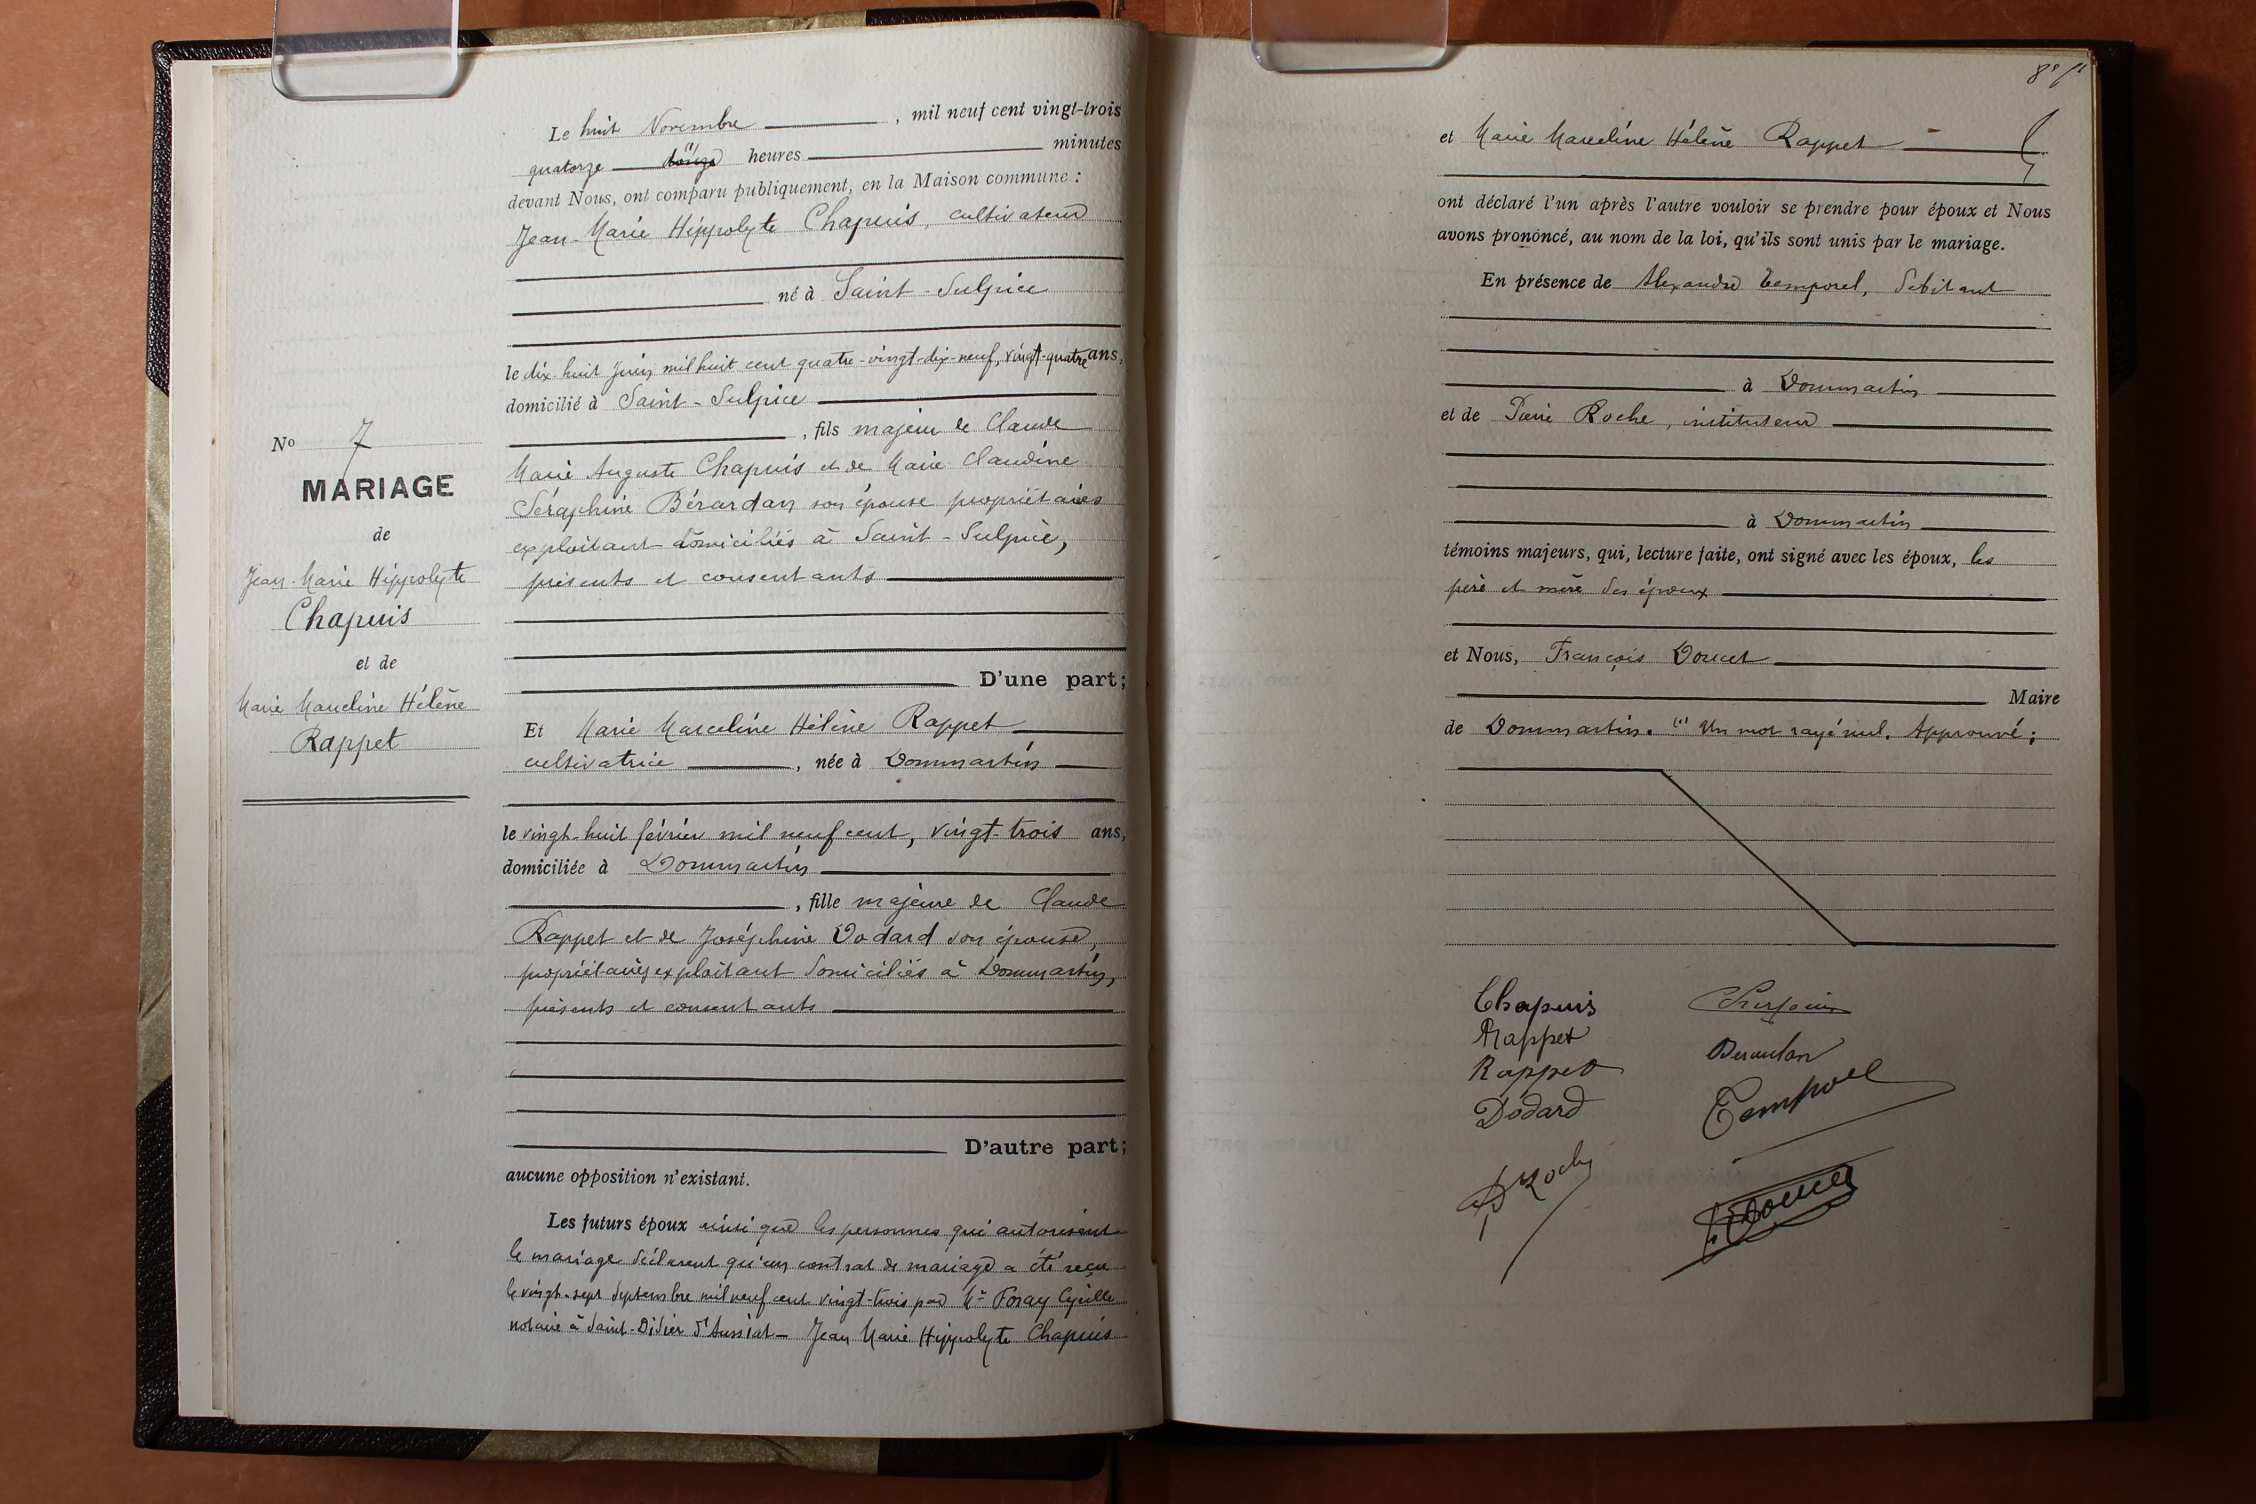 Le huit Novembre , mil neuf cent vingt-trois
quatorze heures minutes
devant Nous, ont comparu publiquement, en la Maison commune :
Jean-Marie Hippolyte Chapuis, cultivateur
né à Saint-Sulpice
le dix-huit Juin mil huit cent quatre-vingt-dix-neuf, vingt-quatre ans,
domicilié à Saint-Sulpice
, fils majeur de Claude
Marie Auguste Chapuis et de Marie Claudine
Séraphine Bérardan son épouse propriétaires
exploitant domiciliés à Saint-Sulpice,
présents et consentants
D'une part;
Et Marie Marceline Hélène Rappet
cultivatrice , née à Dommartin
le vingt-huit février mil neuf cent, vingt-trois ans,
domiciliée à Dommartin
, fille majeure de Claude
Rappet et de Joséphine Dodard son épouse,
propriétaires exploitant domiciliés à Dommartin,
présents et consentants
D'autre part;
aucune opposition n'existant.
Les futurs époux ainsi que les personnes qui autorisent
le mariage déclarent qu'un contrat de mariage a été reçu
le vingt-sept Septembre mil neuf cent vingt-trois par Me Foray Cyrille
notaire à Saint-Didier d'Aussiat - Jean Marie Hippolyte Chapuis
No 7
MARIAGE
de
Jean-Marie Hippolyte
Chapuis
et de
Marie Marceline Hélène
Rappet
et Marie Marceline Hélène Rappet
ont déclaré l'un après l'autre vouloir se prendre pour époux et Nous
avons prononcé, au nom de la loi, qu'ils sont unis par le mariage.
En présence de Alexandre Temporel, débitant
à Dommartin
et de Pierre Roche, instituteur
à Dommartin
témoins majeurs, qui, lecture faite, ont signé avec les époux, les
père et mère des époux
et Nous, François Doucet
Maire
de Dommartin. (1) Un mot rayé nul. Approuvé;
Chapuis
Rappet
Rappet
Dodard
P Roche
Chapuis
Berardan
Temporel
F. Doucet